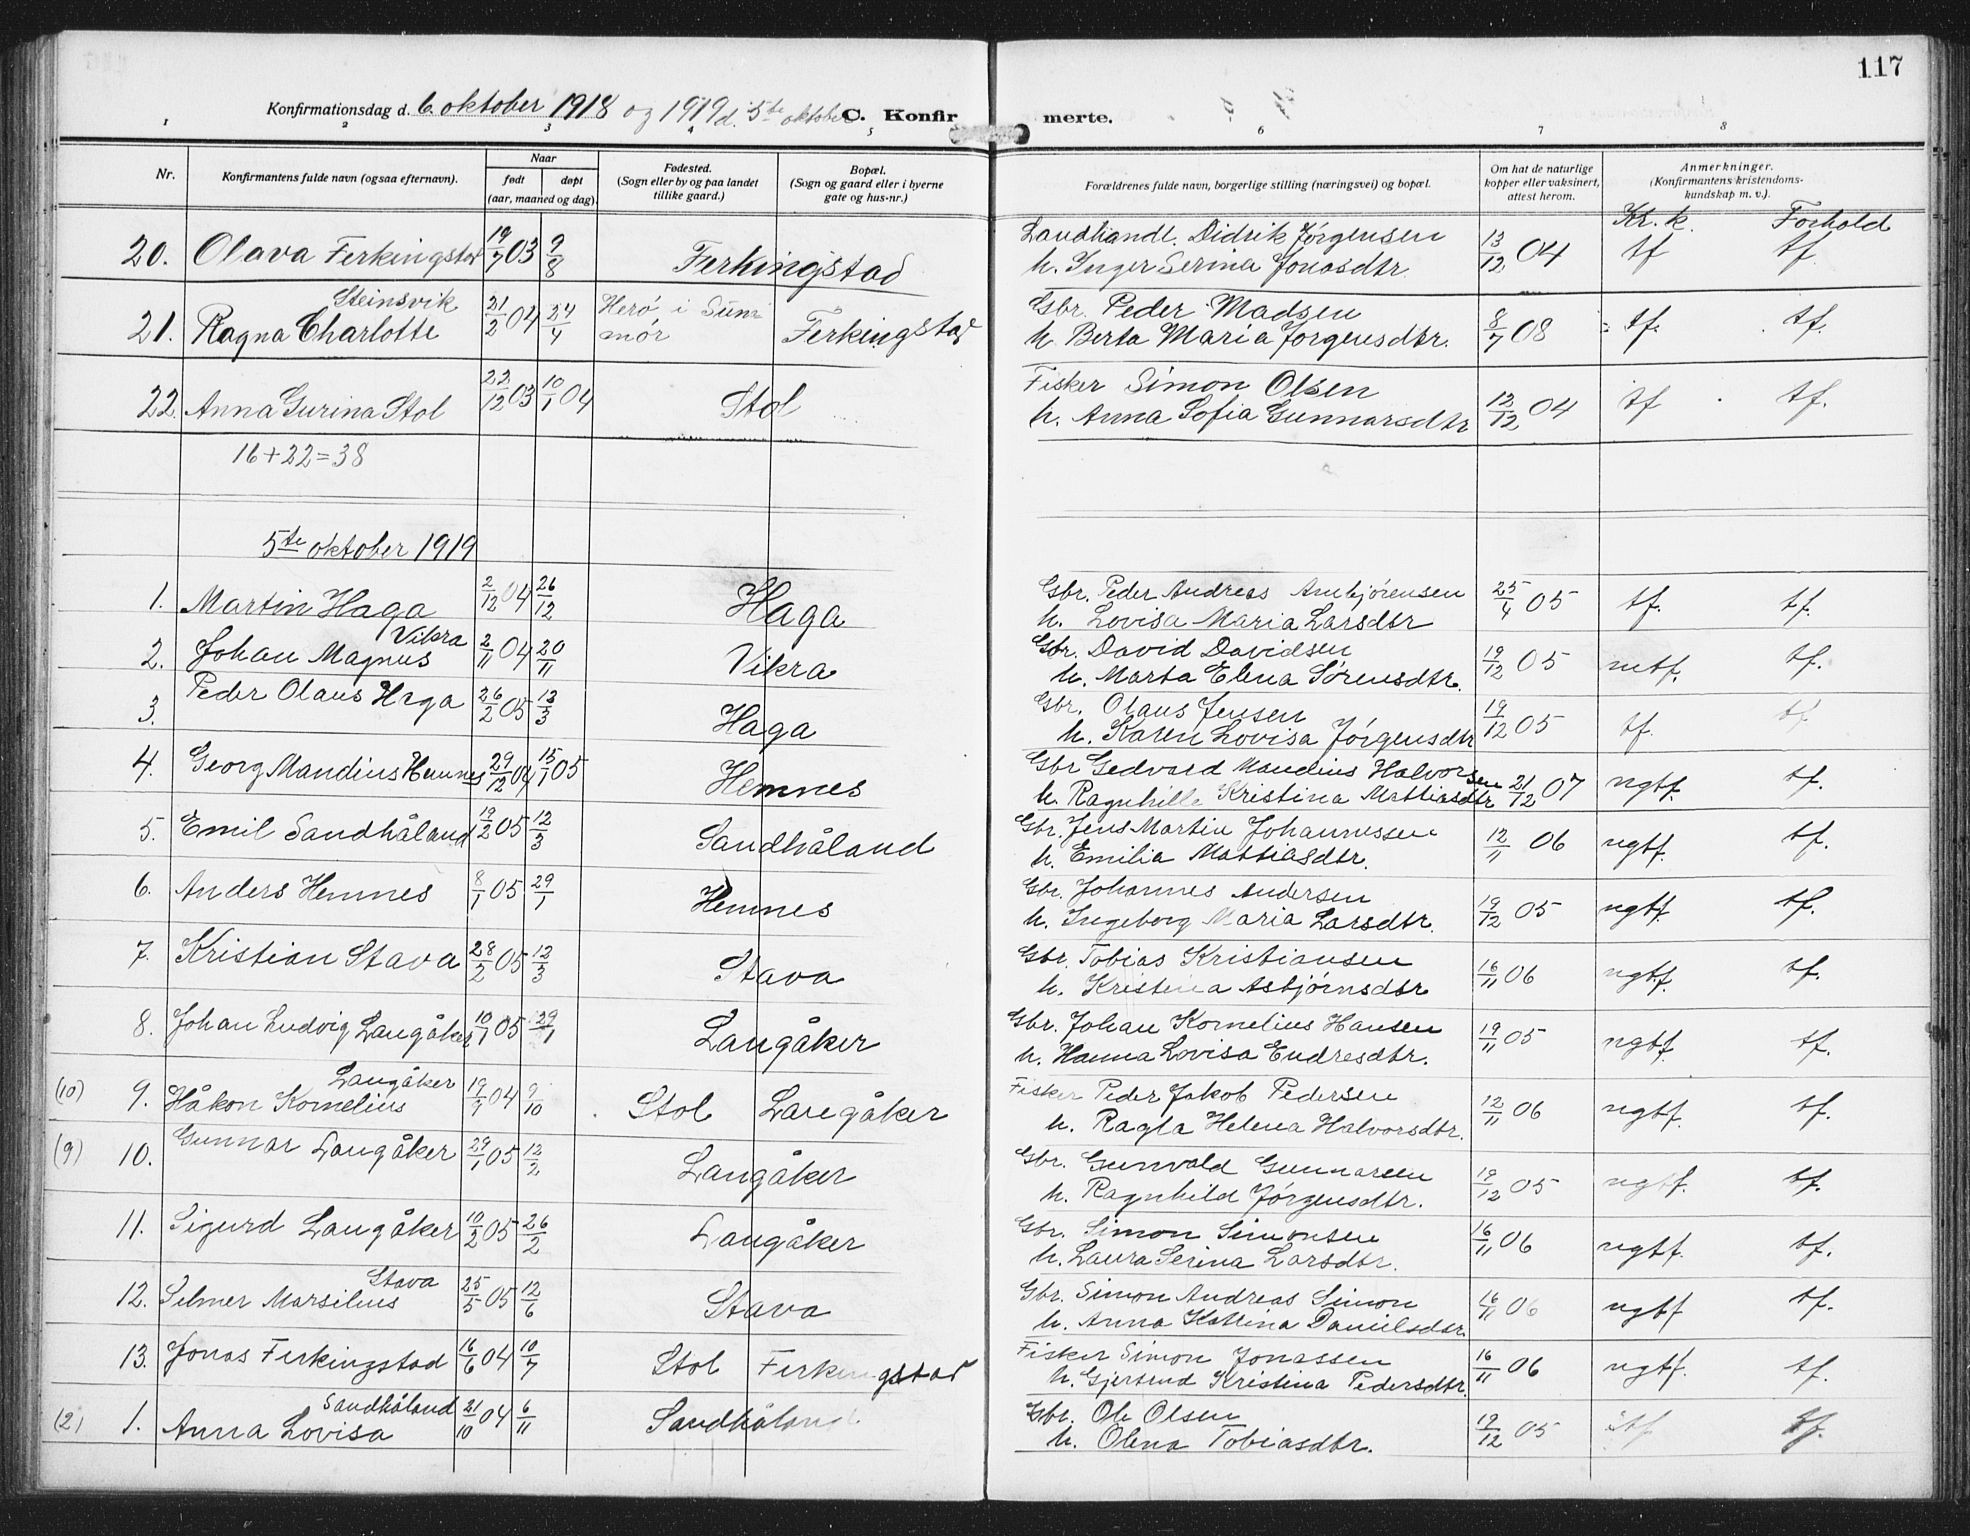 117
Konfirmationsdag d. 6. oktober 1918 og 1919 d. 5te oktober C. Konfirmerte.
1 2 3 4 5 6 7 8
Nr. Konfirmantens fulde navn (ogsaa efternavn). Naar født døpt (aar, maaned og dag). Fødested. (Sogn eller by og paa landet tillike gaard.) Bopæl. (Sogn og gaard eller i byerne gate og hus-nr.) Forældrenes fulde navn, borgerlige stilling (næringsvei) og bopæl. Om hat de naturlige kopper eller vaksinert, attest herom. Anmerkninger. (Konfirmantens kristendomskundskap m. v.).
Kr. k. Forhold
20. Olava Ferkingstad 19/7 03 9/8 Ferkingstad Landhandl. Didrik Jørgensen 13/12 04 tf tf.
h. Inger Serina Jonasdtr.
Steinsvik
21. Ragna Charlotte 21/2 04 24/4 Herø i Sunmør Ferkingstad Gbr. Peder Madsen 8/7 08 tf. tf.
h. Berta Maria Jørgensdtr.
22. Anna Gurina Stol 22/12 03 10/1 04 Stol Fisker Simon Olsen 12/12 04 tf tf.
h. Anna Sofia Gunnarsdtr
16+22=38
5te oktober 1919
1. Martin Haga 2/12 04 26/12 Haga Gbr. Peder Andreas Arnbjørensen 25/4 05 tf. tf.
h. Lovisa Maria Larsdtr
Vikra
2. Johan Magnus 2/11 04 20/11 Vikra Gbr. David Davidsen 19/12 05 mtf. tf.
h. Marta Elena Sørensdtr.
3. Peder Olaus Haga 26/2 05 12/3 Haga Gbr. Olaus Jensen 19/12 05 tf. tf
h. Karen Lovisa Jørgensdtr
4. Georg Mandius Hemnes 29/12 04 15/1 05 Hemnes Gbr Gedvard Mandius Halvorsen 21/12 07 ngtf. tf.
h. Ragnhille Kristina Mattiasdtr
5. Emil Sandhåland 19/2 05 12/3 Sandhåland Gbr. Jens Martin Johannessen 12/11 06 ngtf. tf.
h. Emilia Mattiasdtr.
6. Anders Hemnes 8/1 05 29/1 Hemnes Gbr. Johannes Andersen 19/12 05 ngtf. tf.
h. Ingeborg Maria Larsdtr.
7. Kristian Stava 28/2 05 12/3 Stava Gbr. Tobias Kristiansen 16/11 06 ngtf. tf.
h. Kristena Asbjørnsdtr
8. Johan Ludvig Langåker 10/1 05 29/1 Langåker Gbr. Johan Kornelius Hansen 19/11 05 ngtf. tf.
h. Hanna Lovisa Endresdtr.
Langåker
(10) 9. Håkon Kornelius 19/9 04 9/10 Stol Langåker Fisker Peder Jakob Pedersen 12/11 06 ngtf. tf.
h. Ragla Helena Halvorsdtr.
(9) 10. Gunnar Langåker 29/1 05 12/2 Langåker Gbr. Gunvald Gunnarsen 19/12 05 ngtf. tf.
h. Ragnhild Jørgensdtr.
11. Sigurd Langåker 10/2 05 26/2 Langåker Gbr. Simon Simonsen 16/11 06 ngtf. tf.
h. Laura Serina Larsdtr.
Stava
12. Selmer Marsilius 25/5 05 12/6 Stava Gbr. Simon Andreas Simon 16/11 06 ngtf tf.
h. Anna Katrina Danielsdtr
13. Jonas Ferkingstad 16/6 04 10/7 Stol Ferkingstad Fisker Simon Jonassen 16/11 06 ngtf. tf.
h. Gjertrud Kristina Pedersdtr.
Sandhåland
(2) 1. Anna Lovisa 21/10 04 6/11 Sandhåland Gbr. Ole Olsen 19/12 05 tf tf.
h. Olena Tobiasdtr.